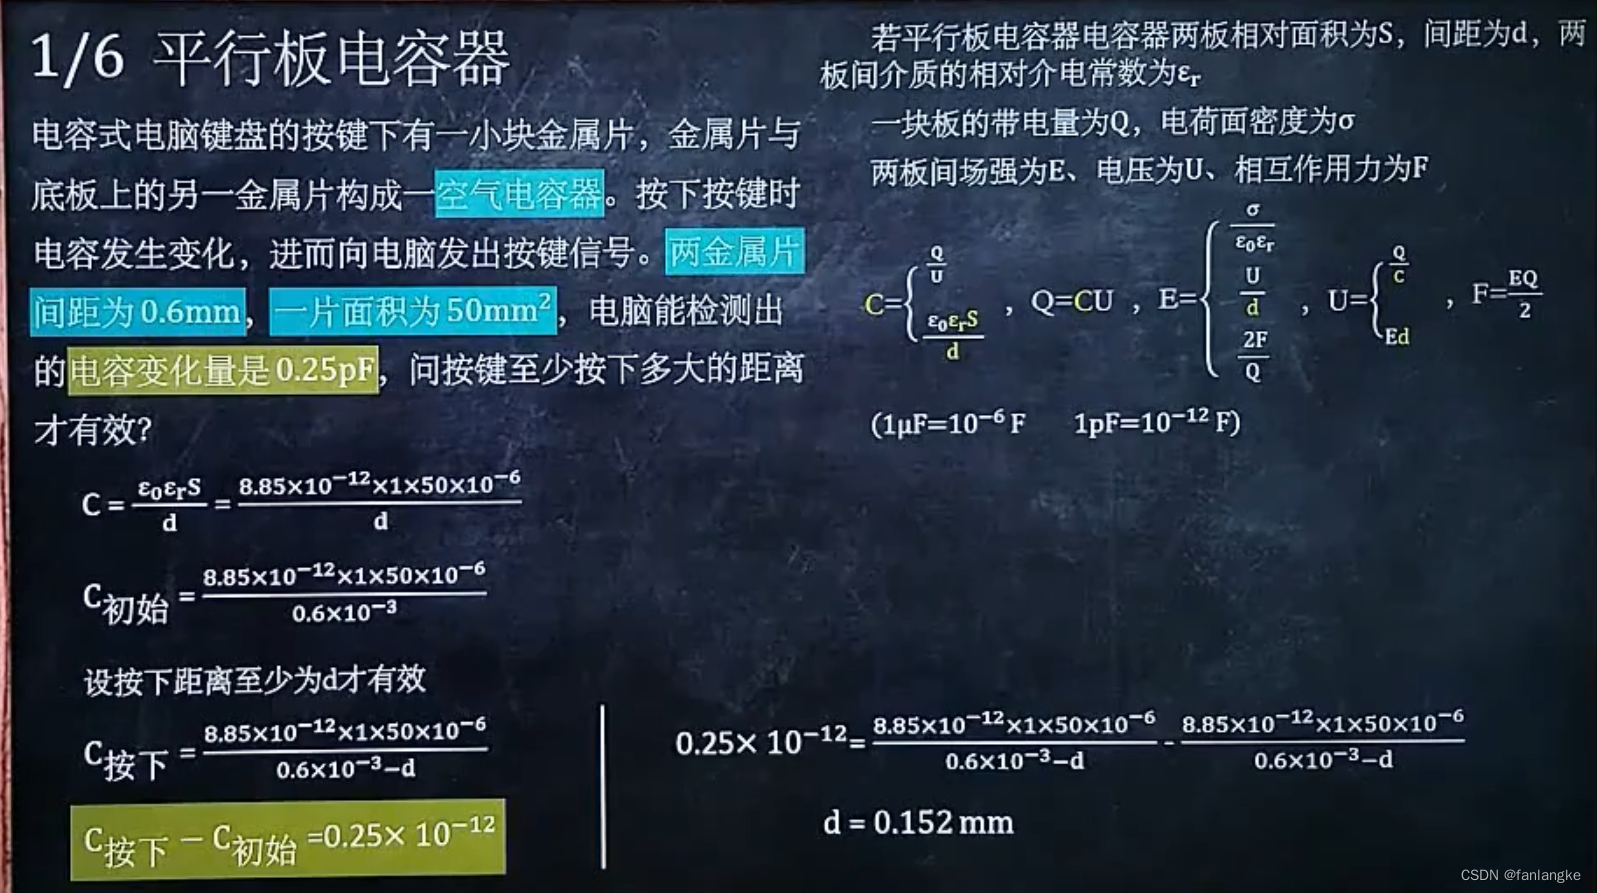 1/6 平行板电容器
电容式电脑键盘的按键下有一小块金属片，金属片与
底板上的另一金属片构成一空气电容器。按下按键时
电容发生变化，进而向电脑发出按键信号。两金属片
间距为0.6mm，一片面积为50mm²，电脑能检测出
的电容变化量是0.25pF，问按键至少按下多大的距离
才有效?
C = ε₀εᵣS/d = 8.85×10⁻¹²×1×50×10⁻⁶/d
C初始 = 8.85×10⁻¹²×1×50×10⁻⁶/0.6×10⁻³
设按下距离至少为d才有效
C按下 = 8.85×10⁻¹²×1×50×10⁻⁶/0.6×10⁻³−d
C按下 − C初始 =0.25× 10⁻¹²
若平行板电容器电容器两板相对面积为S，间距为d，两
板间介质的相对介电常数为εᵣ
一块板的带电量为Q，电荷面密度为σ
两板间场强为E、电压为U、相互作用力为F
C={Q/U ε₀εᵣS/d ，Q=CU ，E={σ/ε₀εᵣ U/d 2F/Q ，U={Q/C Ed ，F=EQ/2
(1μF=10⁻⁶ F 1pF=10⁻¹² F)
0.25× 10⁻¹²= 8.85×10⁻¹²×1×50×10⁻⁶/0.6×10⁻³−d - 8.85×10⁻¹²×1×50×10⁻⁶/0.6×10⁻³−d
d = 0.152 mm
CSDN @fanlangke